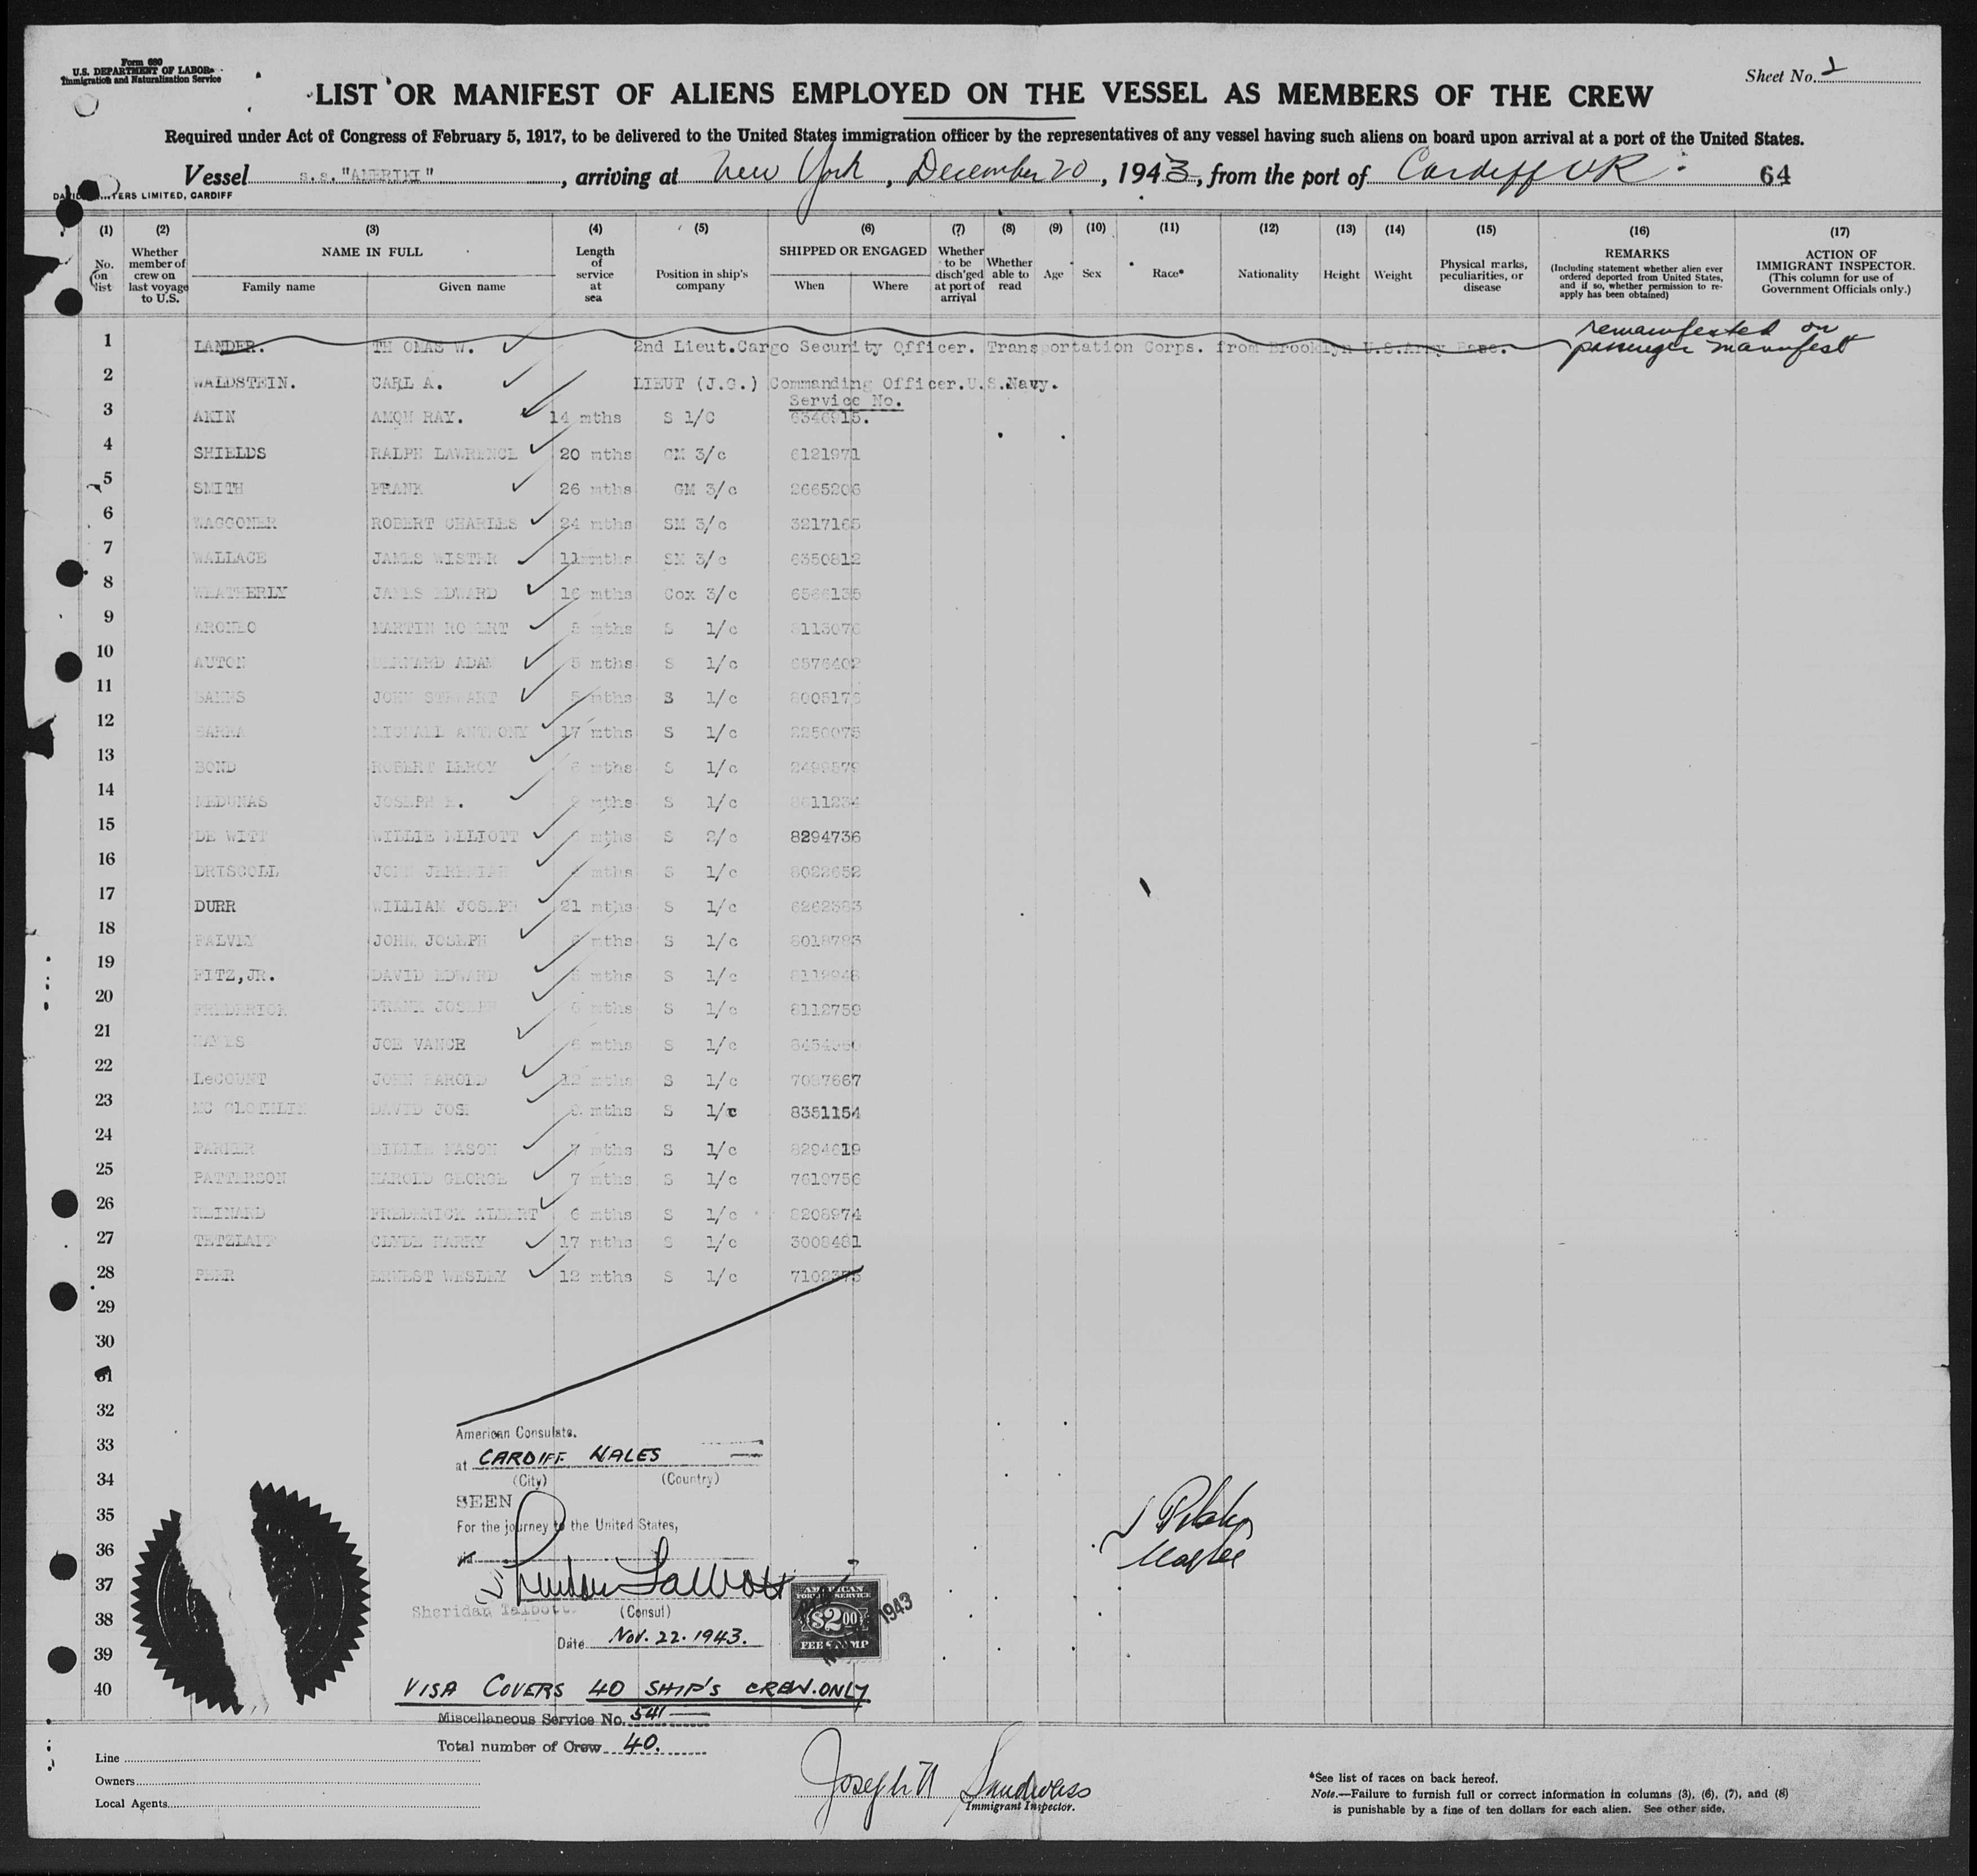 Form 680
U.S. DEPARTMENT OF LABOR
Immigration and Naturalization Service
Sheet No. 2
LIST OR MANIFEST OF ALIENS EMPLOYED ON THE VESSEL AS MEMBERS OF THE CREW
Required under Act of Congress of February 5, 1917, to be delivered to the United States immigration officer by the representatives of any vessel having such aliens on board upon arrival at a port of the United States.
Vessel s.s. "AMERIKI", arriving at New York, December 20, 1943, from the port of Cardiff UK 64
LIMITED, CARDIFF
(1) (2) (3) (4) (5) (6) (7) (8) (9) (10) (11) (12) (13) (14) (15) (16) (17)
No. on list
Whether member of crew on last voyage to U.S.
NAME IN FULL
Family name Given name
Length of service at sea
Position in ship's company
SHIPPED OR ENGAGED
When Where
Whether to be disch'ged at port of arrival
Whether able to read
Age Sex Race* Nationality Height Weight
Physical marks, peculiarities, or disease
REMARKS
(Including statement whether alien ever ordered deported from United States, and if so, whether permission to re-apply has been obtained)
ACTION OF IMMIGRANT INSPECTOR.
(This column for use of Government Officials only.)
remanifested on
passenger manifest
1 LANDER. TH OMAS W. 2nd Lieut.Cargo Security Officer. Transportation Corps. from Brooklyn U.S.Army Base.
2 WALDSTEIN. CARL A. LIEUT (J.G.) Commanding Officer.U.S.Navy.
Service No.
3 AKIN AMON RAY. 14 mths S 1/C 6346915.
4 SHIELDS RALPH LAWRENCE 20 mths GM 3/c 6121971
5 SMITH FRANK 26 mths GM 3/c 2665206
6 WAGGONER ROBERT CHARLES 24 mths SM 3/c 3217165
7 WALLACE JAMES WISTER 11 mths SM 3/c 6350812
8 WEATHERLY JAMES EDWARD 16 mths Cox 3/c 6566135
9 MARTIN ROBERT 5 mths S 1/c
10 AUTON BERNARD ADAM 5 mths S 1/c 6576402
11 JOHN STEWART 5 mths S 1/c
12 MICHAEL ANTHONY 17 mths S 1/c 2250075
13 BOND ROBERT LEROY 6 mths S 1/c
14 MEDUNAS JOSEPH mths S 1/c
15 DE WITT WILLIE ELLIOTT mths S 2/c 8294736
16 DRISCOLL JOHN JEREMIAH mths S 1/c 8022652
17 DURR WILLIAM JOSEPH 21 mths S 1/c 6262383
18 FALVEY JOHN JOSEPH 6 mths S 1/c 8018793
19 FITZ,JR. DAVID EDWARD mths S 1/c
20 FREDERICK FRANK JOSEPH 6 mths S 1/c 8112759
21 JOE VANCE 6 mths S 1/c
22 LeCOUNT JOHN HAROLD 12 mths S 1/c 7087667
23 DAVID mths S 1/c 8351154
24 PARKER BILLIE MASON 7 mths S 1/c 8294619
25 PATTERSON HAROLD GEORGE 7 mths S 1/c 7619756
26 REINARD FREDERICK ALBERT 6 mths S 1/c 8208974
27 TETZLAFF CLYDE HARRY 17 mths S 1/c 3008481
28 ERNEST WESLEY 12 mths S 1/c
29
30
31
32
33
34
35
36
37
38
39
40
American Consulate.
at CARDIFF WALES
(City) (Country)
SEEN
For the journey to the United States,
via
Sheridan Talbott
Sheridan Talbott
(Consul)
Date Nov. 22. 1943.
AMERICAN
FOREIGN SERVICE
$2.00
FEE STAMP
1943
VISA COVERS 40 SHIP'S CREW.ONLY
Miscellaneous Service No. 541
Total number of Crew 40.
Master
Line
Owners
Local Agents
Joseph Sandweiss
Immigrant Inspector.
*See list of races on back hereof.
Note.—Failure to furnish full or correct information in columns (3), (6), (7), and (8)
is punishable by a fine of ten dollars for each alien. See other side.